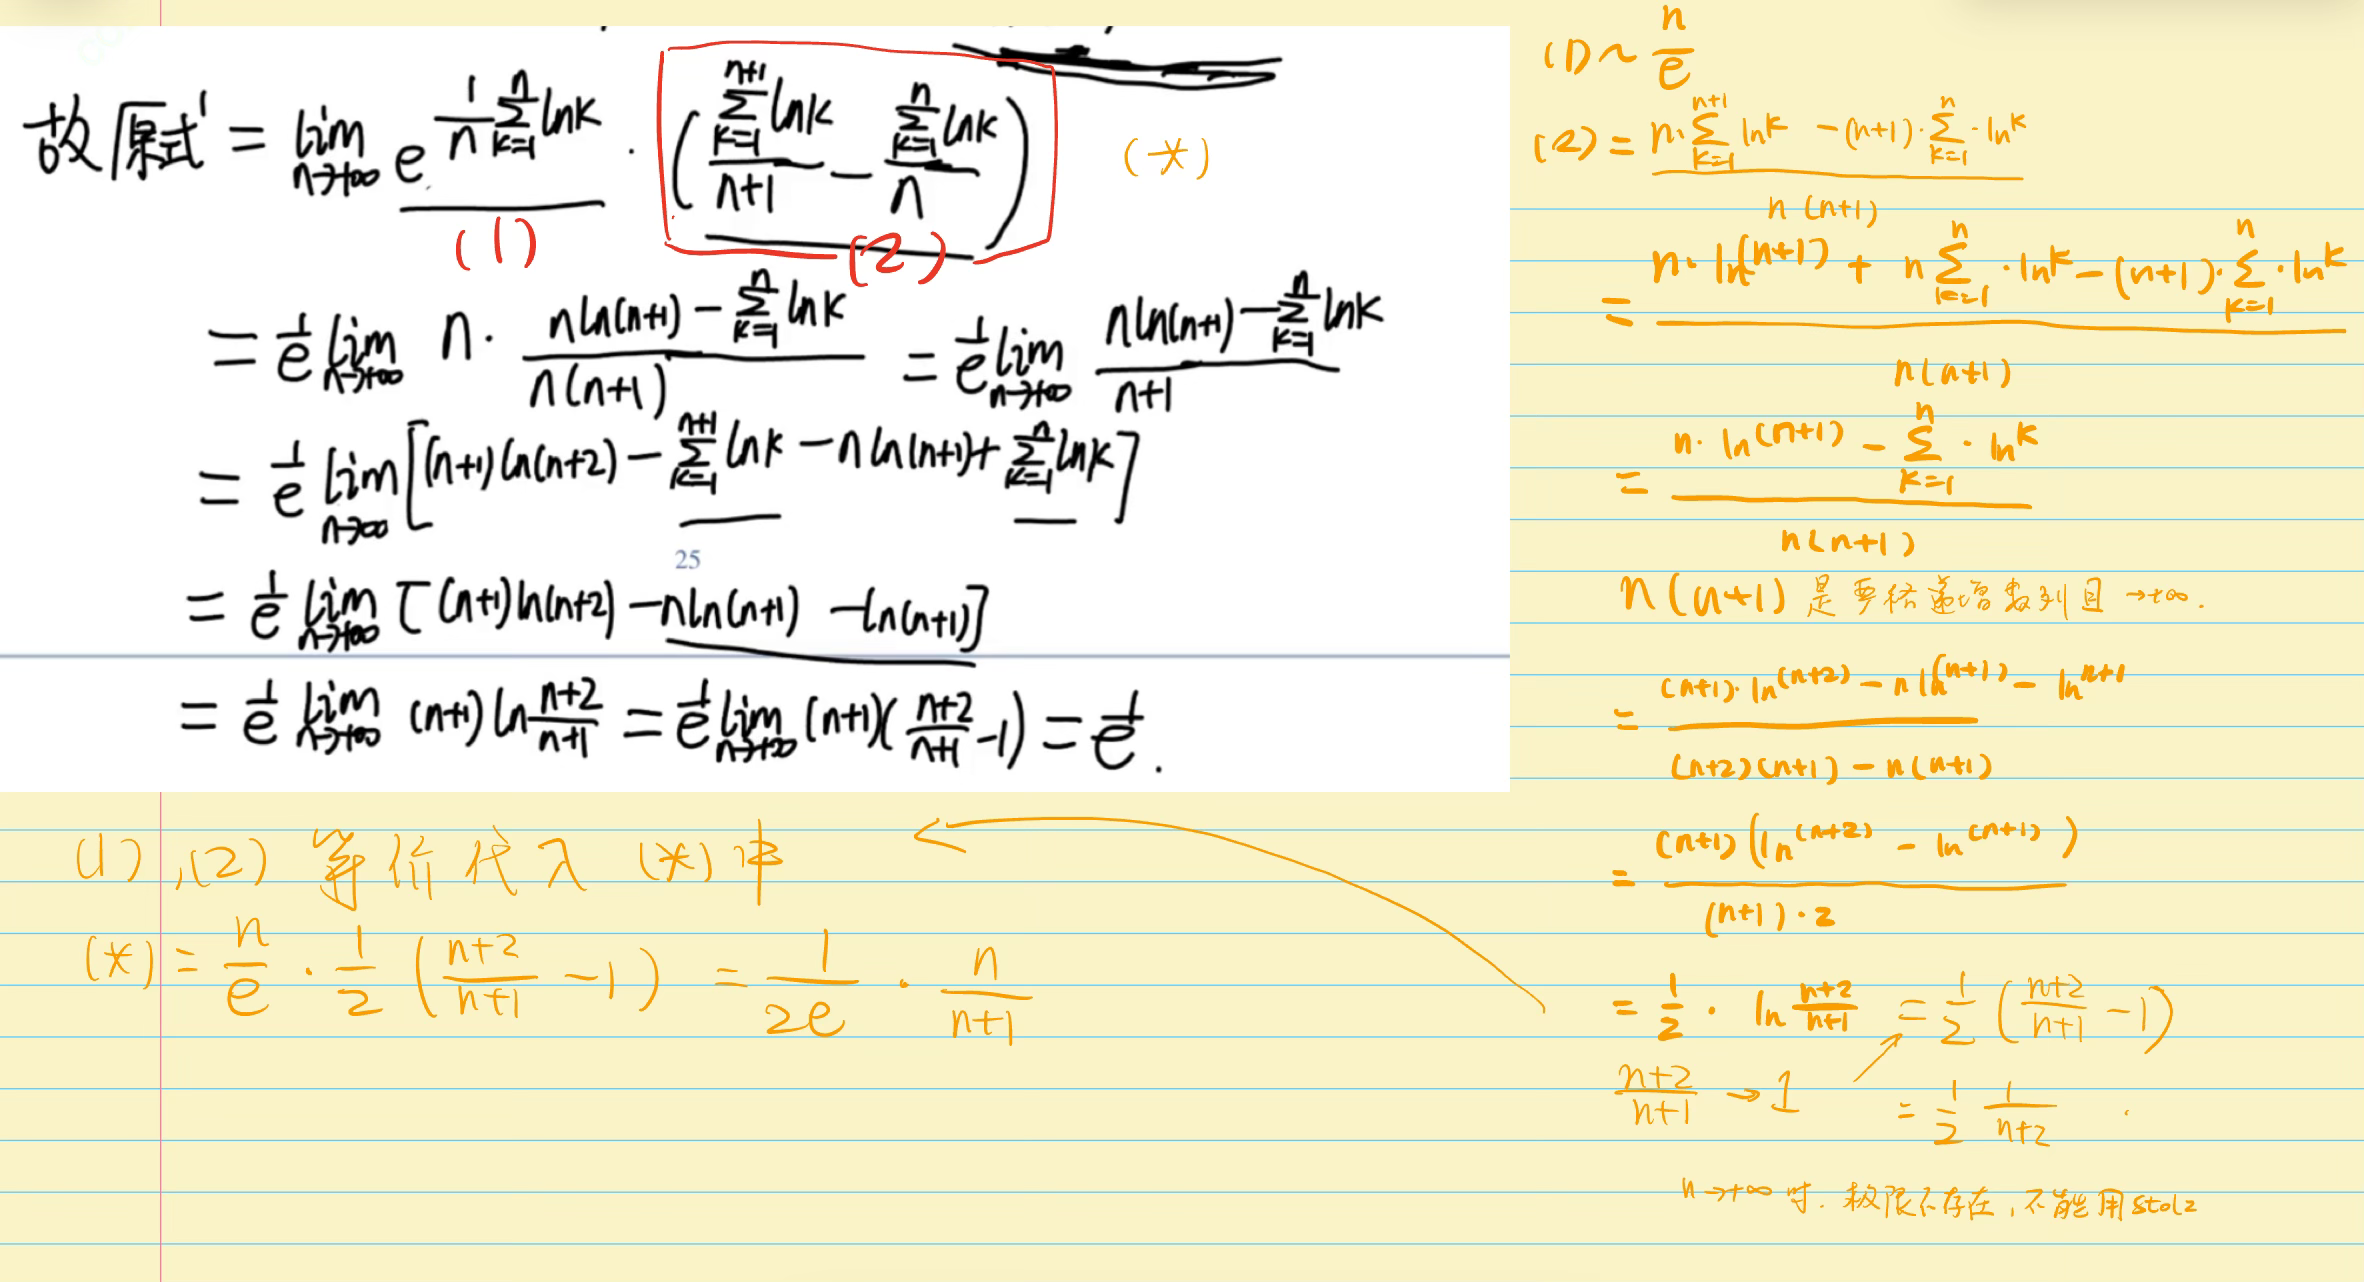 故原式 = lim_{n→+∞} e^{\frac{1}{n}\sum_{k=1}^{n} lnk} · ( \frac{\sum_{k=1}^{n+1} lnk}{n+1} - \frac{\sum_{k=1}^{n} lnk}{n} ) (*)
(1) (2)
= \frac{1}{e} lim_{n→+∞} n · \frac{nln(n+1) - \sum_{k=1}^{n} lnk}{n(n+1)} = \frac{1}{e} lim_{n→+∞} \frac{nln(n+1) - \sum_{k=1}^{n} lnk}{n+1}
= \frac{1}{e} lim_{n→∞} [(n+1)ln(n+2) - \sum_{k=1}^{n+1} lnk - nln(n+1) + \sum_{k=1}^{n} lnk]
25
= \frac{1}{e} lim_{n→+∞} [(n+1)ln(n+2) - nln(n+1) - ln(n+1)]
= \frac{1}{e} lim_{n→+∞} (n+1)ln\frac{n+2}{n+1} = \frac{1}{e} lim_{n→+∞} (n+1)(\frac{n+2}{n+1} - 1) = \frac{1}{e}.
(1),(2) 等价代入 (*)中
(*) = \frac{n}{e} · \frac{1}{2} (\frac{n+2}{n+1} - 1) = \frac{1}{2e} · \frac{n}{n+1}
(1) ~ \frac{n}{e}
(2) = \frac{n·\sum_{k=1}^{n+1} lnk - (n+1)·\sum_{k=1}^{n}·lnk}{n(n+1)}
= \frac{n·ln(n+1) + n\sum_{k=1}^{n}·lnk - (n+1)·\sum_{k=1}^{n}·lnk}{n(n+1)}
= \frac{n·ln(n+1) - \sum_{k=1}^{n}·lnk}{n(n+1)}
n(n+1) 是严格递增数列且 →+∞.
= \frac{(n+1)·ln(n+2) - nln(n+1) - ln n+1}{(n+2)(n+1) - n(n+1)}
= \frac{(n+1)(ln(n+2) - ln(n+1))}{(n+1)·2}
= \frac{1}{2} · ln\frac{n+2}{n+1} = \frac{1}{2} (\frac{n+2}{n+1} - 1)
\frac{n+2}{n+1} → 1 = \frac{1}{2} \frac{1}{n+2}
n→+∞ 时. 极限不存在, 不能用 stolz